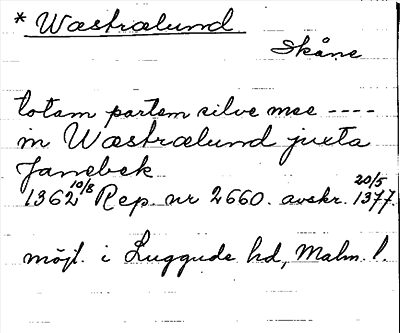 * Wæstrælund
Skåne
totam partem silve mee ----
in Wæstrælund juxta
Janebek
1362 10/8 Rep. nr 2660. avskr. 20/5 1377.
möjl. i Luggude hd, Malm. l.